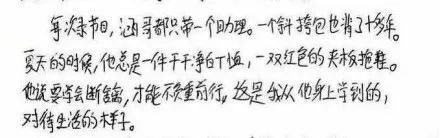 每次录节目,涵哥都只带一个助理。一个斜挎包也背了十多年。
夏天的时候,他总是一件干干净净的T恤,一双红色的夹板拖鞋。
他说要学会断舍离,才能不负重前行。这是我从他身上学到的,
对待生活的样子。